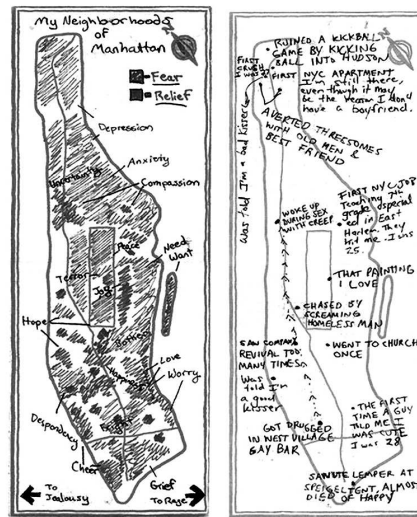 My Neighborhoods
of
Manhattan
-Fear
-Relief
Depression
Anxiety
Uncertainty
Compassion
Peace
Need
Want
Terror
Joy
Hope
Love
Happiness
Worry
Despondency
Cheer
Grief
To
Jealousy
To Rage
RUINED A KICKBALL
GAME BY KICKING
BALL INTO HUDSON
FIRST
CRUSH
FIRST NYC APARTMENT
I'm still there,
even though it may
be the reason I don't
have a boyfriend.
AVERTED THREESOMES
WITH OLD MEN &
BEST FRIEND
Was told I'm a bad kisser
WOKE UP
DURING SEX
WITH CREEP
FIRST NYC JOB
Teaching 7th
grade special
ed in East
Harlem. They
hit me. I was
25.
THAT PAINTING
I LOVE
CHASED BY
SCREAMING
HOMELESS MAN
SAW COMPANY
REVIVAL TOO
MANY TIMES
WENT TO CHURCH
ONCE
Was
told I'm
a good
kisser
GOT DRUGGED
IN WEST VILLAGE
GAY BAR
THE FIRST
TIME A GUY
TOLD ME I
WAS CUTE
I was 28
SAW UTE LEMPER AT
SPEIGELTENT, ALMOST
DIED OF HAPPY